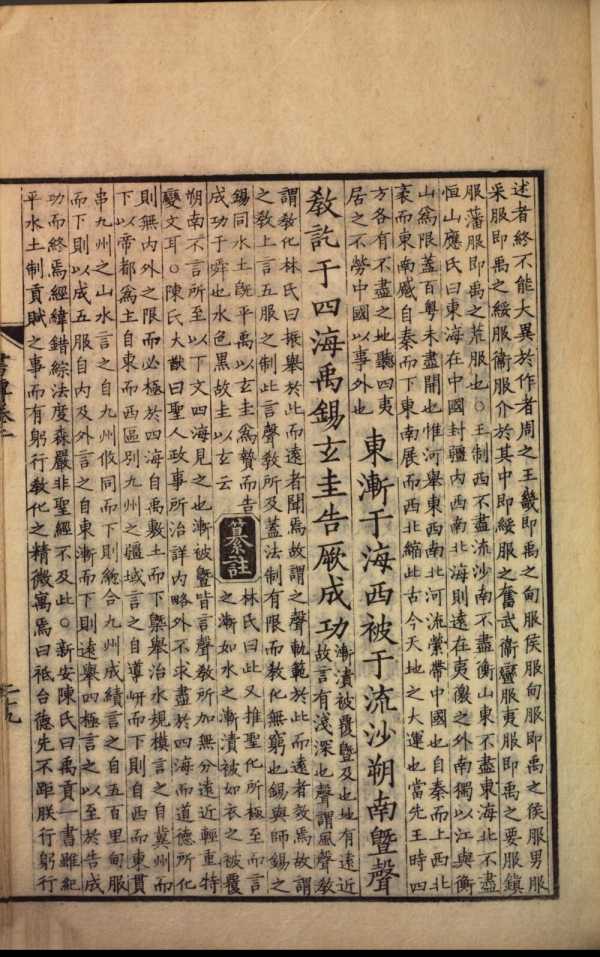 述者終不能大異於作者周之王畿即禹之甸服侯服甸服即禹之侯服男服
采服即禹之綏服衞服介於其中即綏服之奮武衛蠻服夷服即禹之要服鎮
服藩服即禹之荒服也○王制西不盡流沙南不盡衡山東不盡東海北不盡
恒山應氏曰東海在中國封疆内西南北海則遠在夷徼之外南獨以江與衡
山爲限蓋百粤未盡開也惟河舉東西南北河流縈帶中國也自秦而上西北
袤而東南蹙自秦而下東南展而西北縮此古今天地之大運也當先王時四
方各有不盡之地聽四夷
居之不勞中國以事外也
東漸于海西被于流沙朔南曁聲
教訖于四海禹錫玄圭告厥成功
漸漬被覆曁及也地有遠近
故言有淺深也聲謂風聲教
謂教化林氏曰振舉於此而遠者聞焉故謂之聲軌範於此而遠者效焉故謂
之教上言五服之制此言聲教所及蓋法制有限而教化無窮也錫與師錫之
錫同水土旣平禹以玄圭爲贄而告
成功于舜也水色黑故圭以玄云
纂註
林氏曰此又推聖化所極至而言
之漸如水之漸漬被如衣之被覆
朔南不言所至以下文四海見之也漸被曁皆言聲教所加無分遠近輕重特
變文耳○陳氏大猷曰聖人政事所治詳内略外不求盡於四海而道德所化
則無内外之限而必極於四海自禹敷土而下槩舉治水規模言之自冀州而
下以帝都爲主自東而西區別九州之疆域言之自導岍而下則自西而東貫
串九州之山水言之自九州攸同而下則緫合九州成績言之自五百里甸服
而下則以成五服自内及外言之自東漸而下則遠舉四極言之以至於告成
功而終焉經緯錯綜法度森嚴非聖經不及此○新安陳氏曰禹貢一書雖紀
平水土制貢賦之事而有躬行教化之精微寓焉曰祗台德先不距朕行躬行